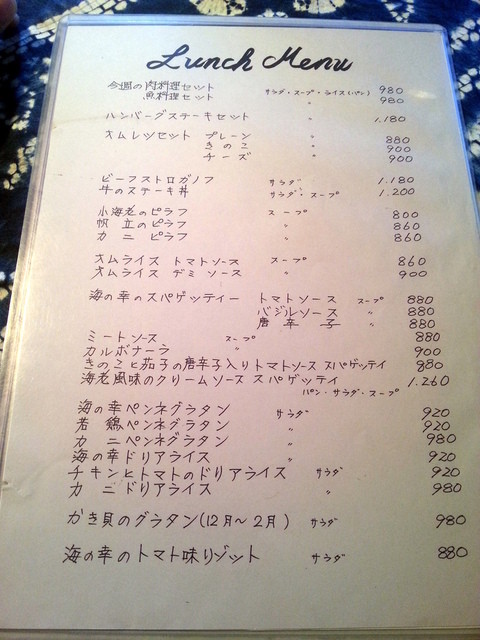 Lunch Menu
今週の肉料理セット サラダ・スープ・ライス(パン) 980
魚料理セット 〃 980
ハンバーグステーキセット 〃 1.180
オムレツセット プレーン 〃 880
きのこ 〃 900
チーズ 〃 900
ビーフストロガノフ サラダ 1.180
牛のステーキ丼 サラダ・スープ 1.200
小海老のピラフ スープ 800
帆立のピラフ 〃 860
カニ ピラフ 〃 860
オムライス トマトソース スープ 860
オムライス デミソース 〃 900
海の幸のスパゲッティー トマトソース スープ 880
バジルソース 〃 880
唐辛子 〃 880
ミートソース スープ 880
カルボナーラ 〃 900
きのこと茄子の唐辛子入りトマトソース スパゲッティ 980
海老風味のクリームソース スパゲッティ 1.260
パン・サラダ・スープ
海の幸ペンネグラタン サラダ 920
若鶏ペンネグラタン 〃 920
カニペンネグラタン 〃 980
海の幸ドリアライス 〃 920
チキンとトマトのドリアライス サラダ 920
カニドリアライス 〃 980
かき貝のグラタン(12月〜2月) サラダ 980
海の幸のトマト味リゾット サラダ 880